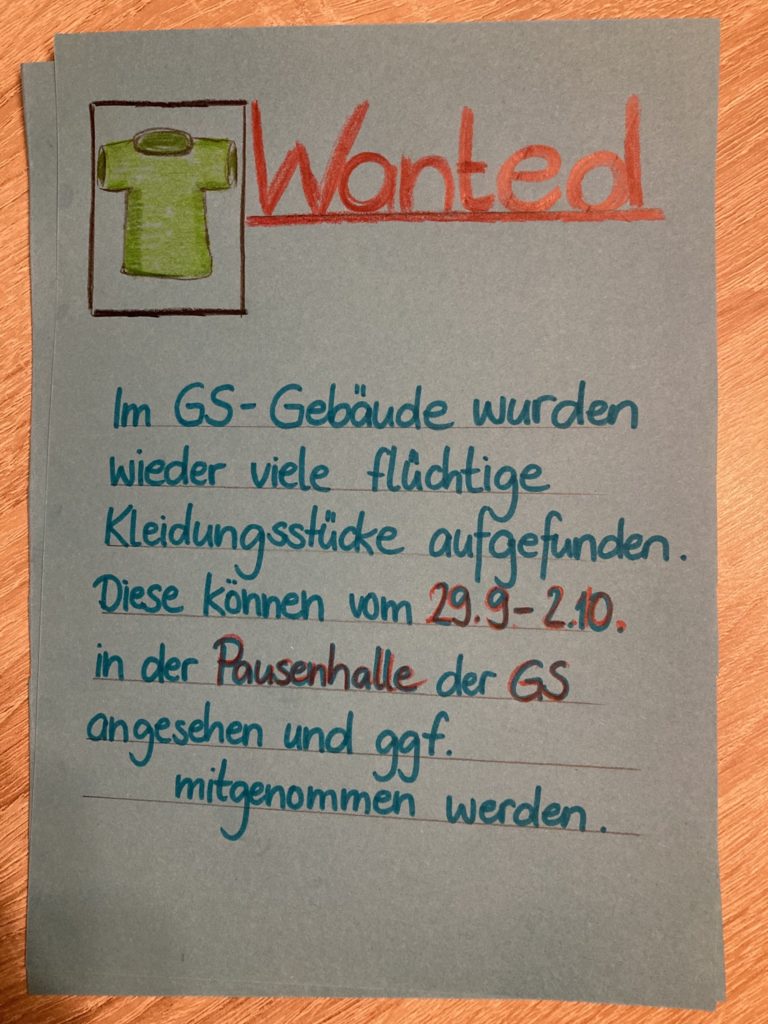 Wanted
Im GS-Gebäude wurden
wieder viele flüchtige
Kleidungsstücke aufgefunden.
Diese können vom 29.9-2.10.
in der Pausenhalle der GS
angesehen und ggf.
mitgenommen werden.